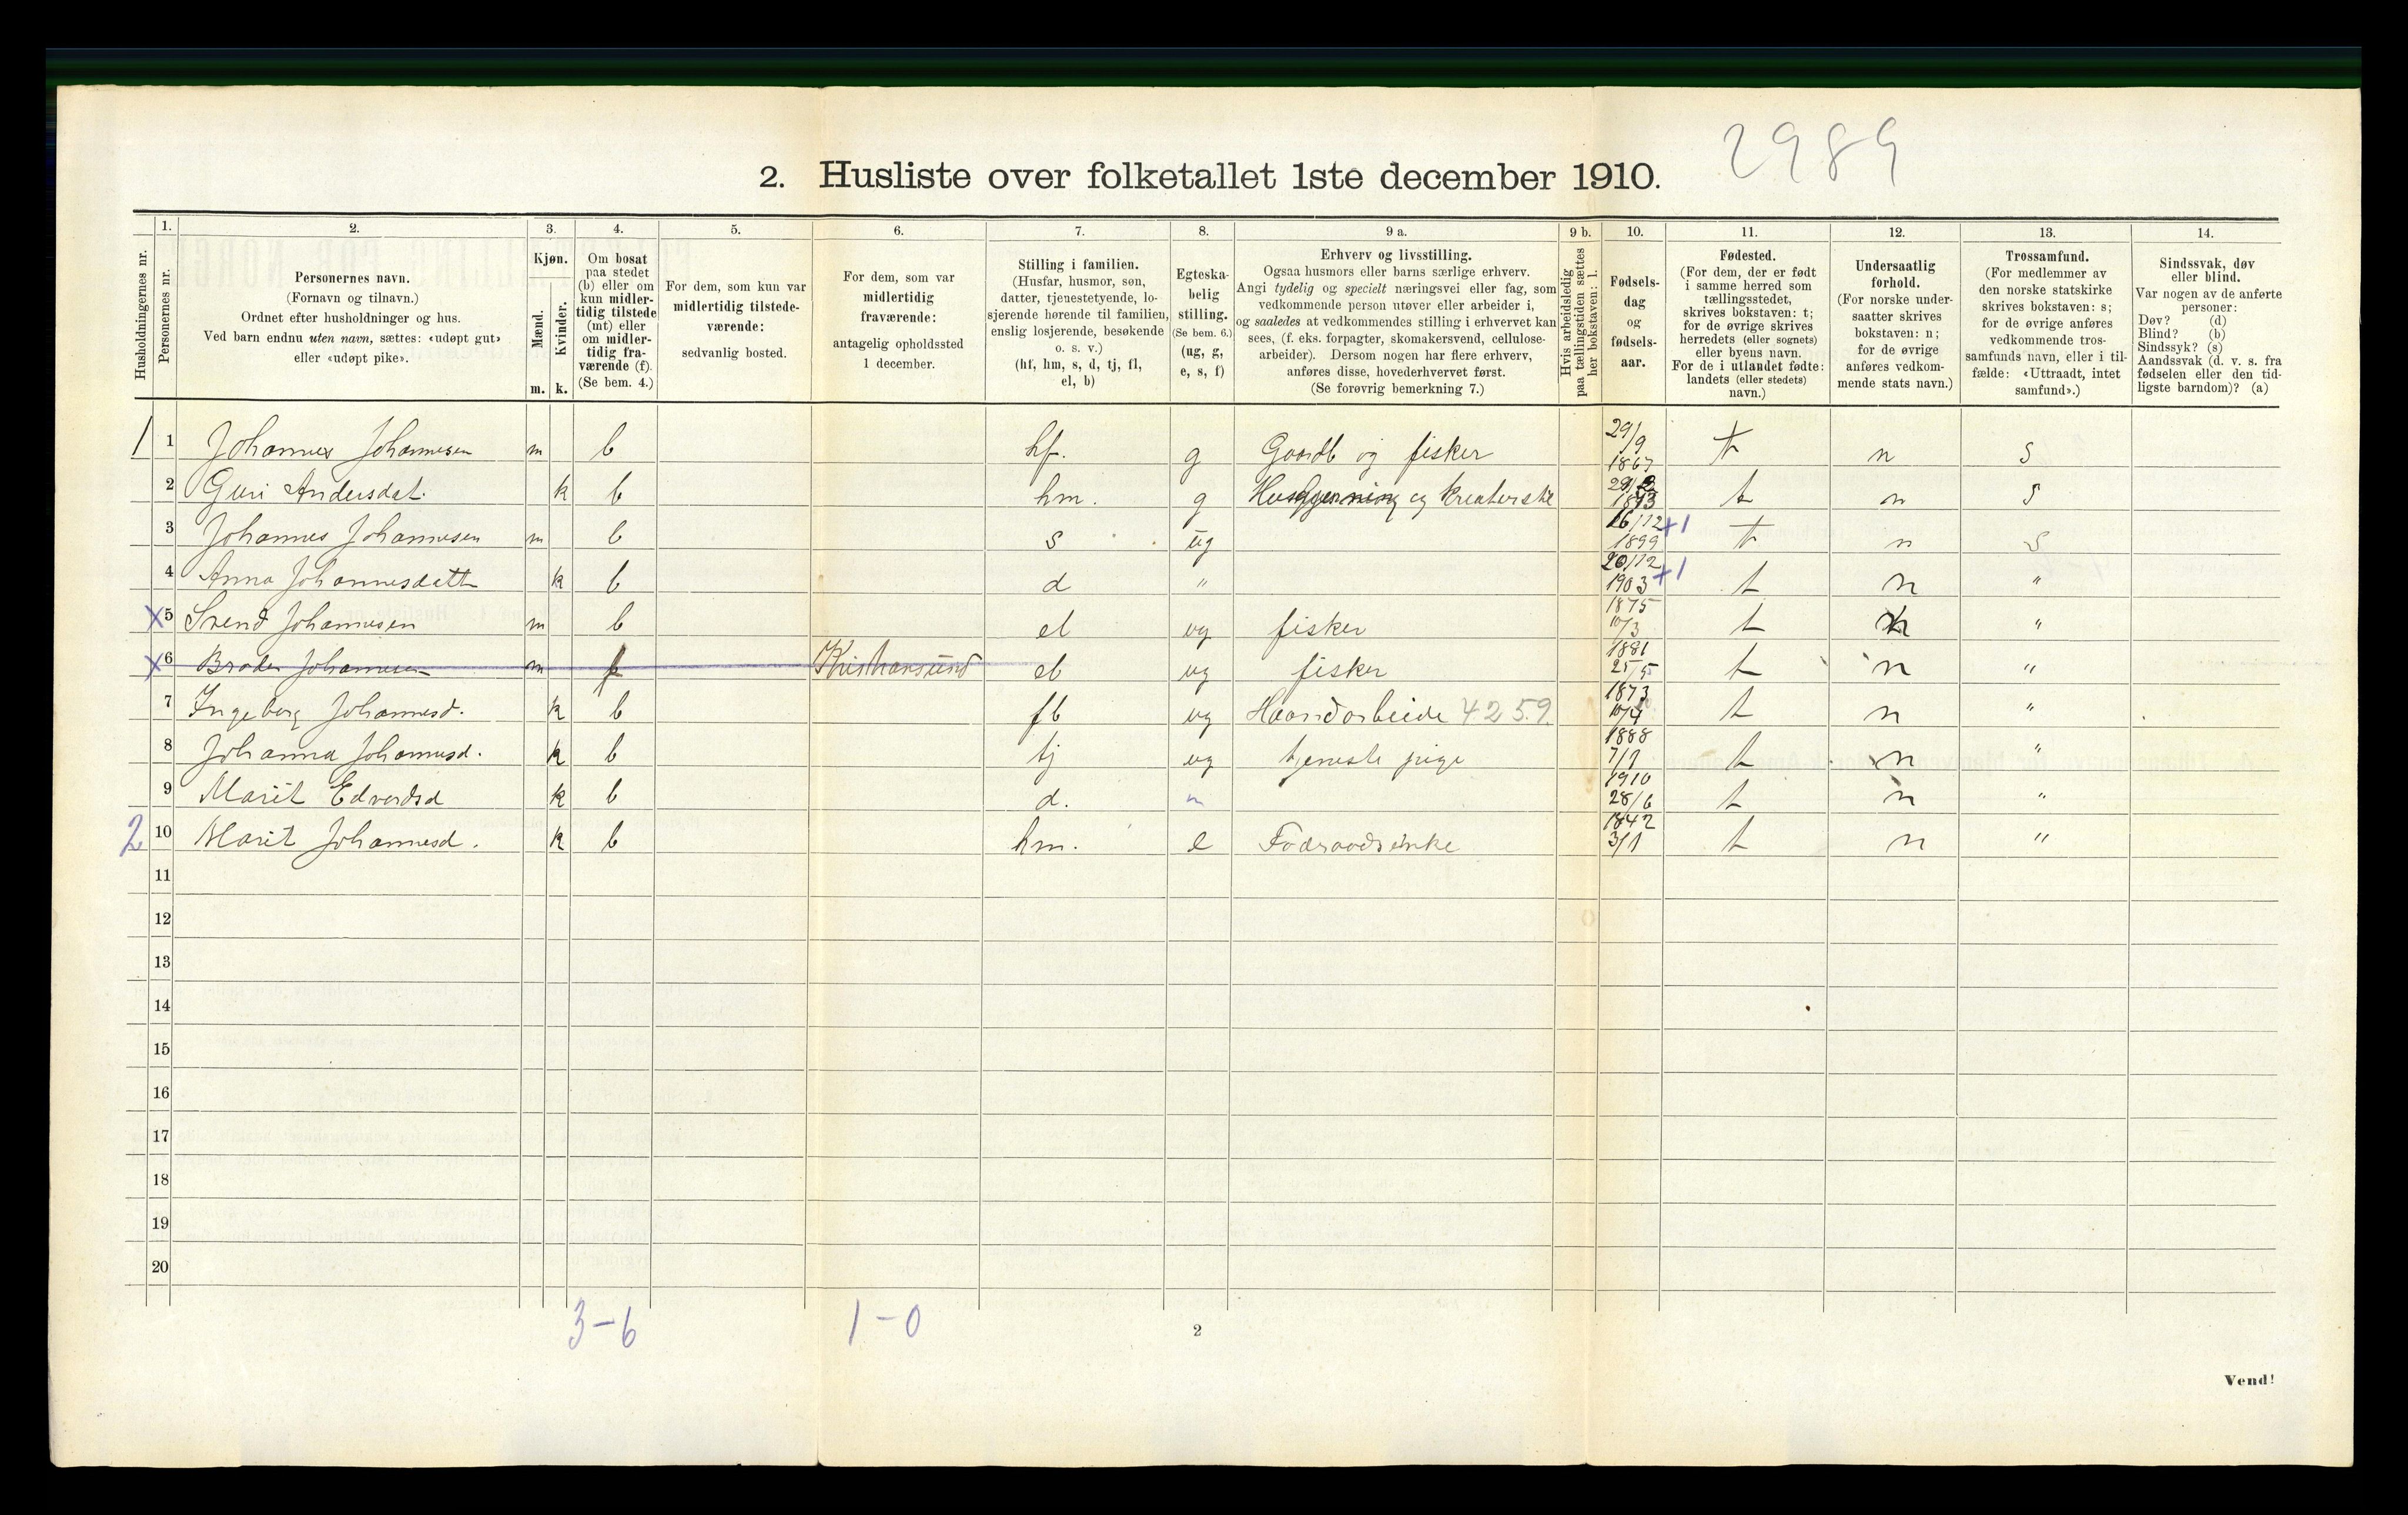 2989
2. Husliste over folketallet 1ste december 1910.
Husholdningernes nr.
1. Personernes nr.
2. Personernes navn.
(Fornavn og tilnavn.)
Ordnet efter husholdninger og hus.
Ved barn endnu uten navn, sættes: «udøpt gut»
eller «udøpt pike».
3. Kjøn.
Mænd. m.
Kvinder. k.
4. Om bosat
paa stedet
(b) eller om
kun midler-
tidig tilstede
(mt) eller
om midler-
tidig fra-
værende (f).
(Se bem. 4.)
5. For dem, som kun var
midlertidig tilstede-
værende:
sedvanlig bosted.
6. For dem, som var
midlertidig
fraværende:
antagelig opholdssted
1 december.
7. Stilling i familien.
(Husfar, husmor, søn,
datter, tjenestetyende, lo-
sjerende hørende til familien,
enslig losjerende, besøkende
o. s. v.)
(hf, hm, s, d, tj, fl,
el, b)
8. Egteska-
belig
stilling.
(Se bem. 6.)
(ug, g,
e, s, f)
9 a. Erhverv og livsstilling.
Ogsaa husmors eller barns særlige erhverv.
Angi tydelig og specielt næringsvei eller fag, som
vedkommende person utøver eller arbeider i,
og saaledes at vedkommendes stilling i erhvervet kan
sees, (f. eks. forpagter, skomakersvend, cellulose-
arbeider). Dersom nogen har flere erhverv,
anføres disse, hovederhvervet først.
(Se forøvrig bemerkning 7.)
9 b. Hvis arbeidsledig
paa tællingstiden sættes
her bokstaven: l.
10. Fødsels-
dag
og
fødsels-
aar.
11. Fødested.
(For dem, der er født
i samme herred som
tællingsstedet,
skrives bokstaven: t;
for de øvrige skrives
herredets (eller sognets)
eller byens navn.
For de i utlandet fødte:
landets (eller stedets)
navn.)
12. Undersaatlig
forhold.
(For norske under-
saatter skrives
bokstaven: n;
for de øvrige
anføres vedkom-
mende stats navn.)
13. Trossamfund.
(For medlemmer av
den norske statskirke
skrives bokstaven: s;
for de øvrige anføres
vedkommende tros-
samfunds navn, eller i til-
fælde: «Uttraadt, intet
samfund».)
14. Sindssvak, døv
eller blind.
Var nogen av de anførte
personer:
Døv? (d)
Blind? (b)
Sindssyk? (s)
Aandssvak (d. v. s. fra
fødselen eller den tid-
ligste barndom)? (a)
1 1 Johannes Johannesen m b hf. g Gaardb og fisker 29/9 1867 t n s
2 Guri Andersdat. k b hm. g Husgjerning og kreaturste 1873 t n s
3 Johannes Johannesen m b s ug 16/12 1899 +1 t n s
4 Anna Johannesdatt k b d " 20/12 1903 +1 t n "
x 5 Svend Johannesen m b el ug fisker 1875 10/3 t n "
x 6 Broder Johannesen m f Kristiansund el ug fisker 1881 25/5 t n "
7 Ingeborg Johannesd. k b fl ug Haandarbeide 4259 1873 10/4 t n "
8 Johanna Johannesd. k b tj ug tjeneste pige 1888 7/1 t n "
9 Marit Edvardsd k b d. 1910 28/6 t n "
2 10 Marit Johannesd. k b hm. e Foderaadsenke 1842 3/1 t n "
11
12
13
14
15
16
17
18
19
20
3-6 1-0
2
Vend!